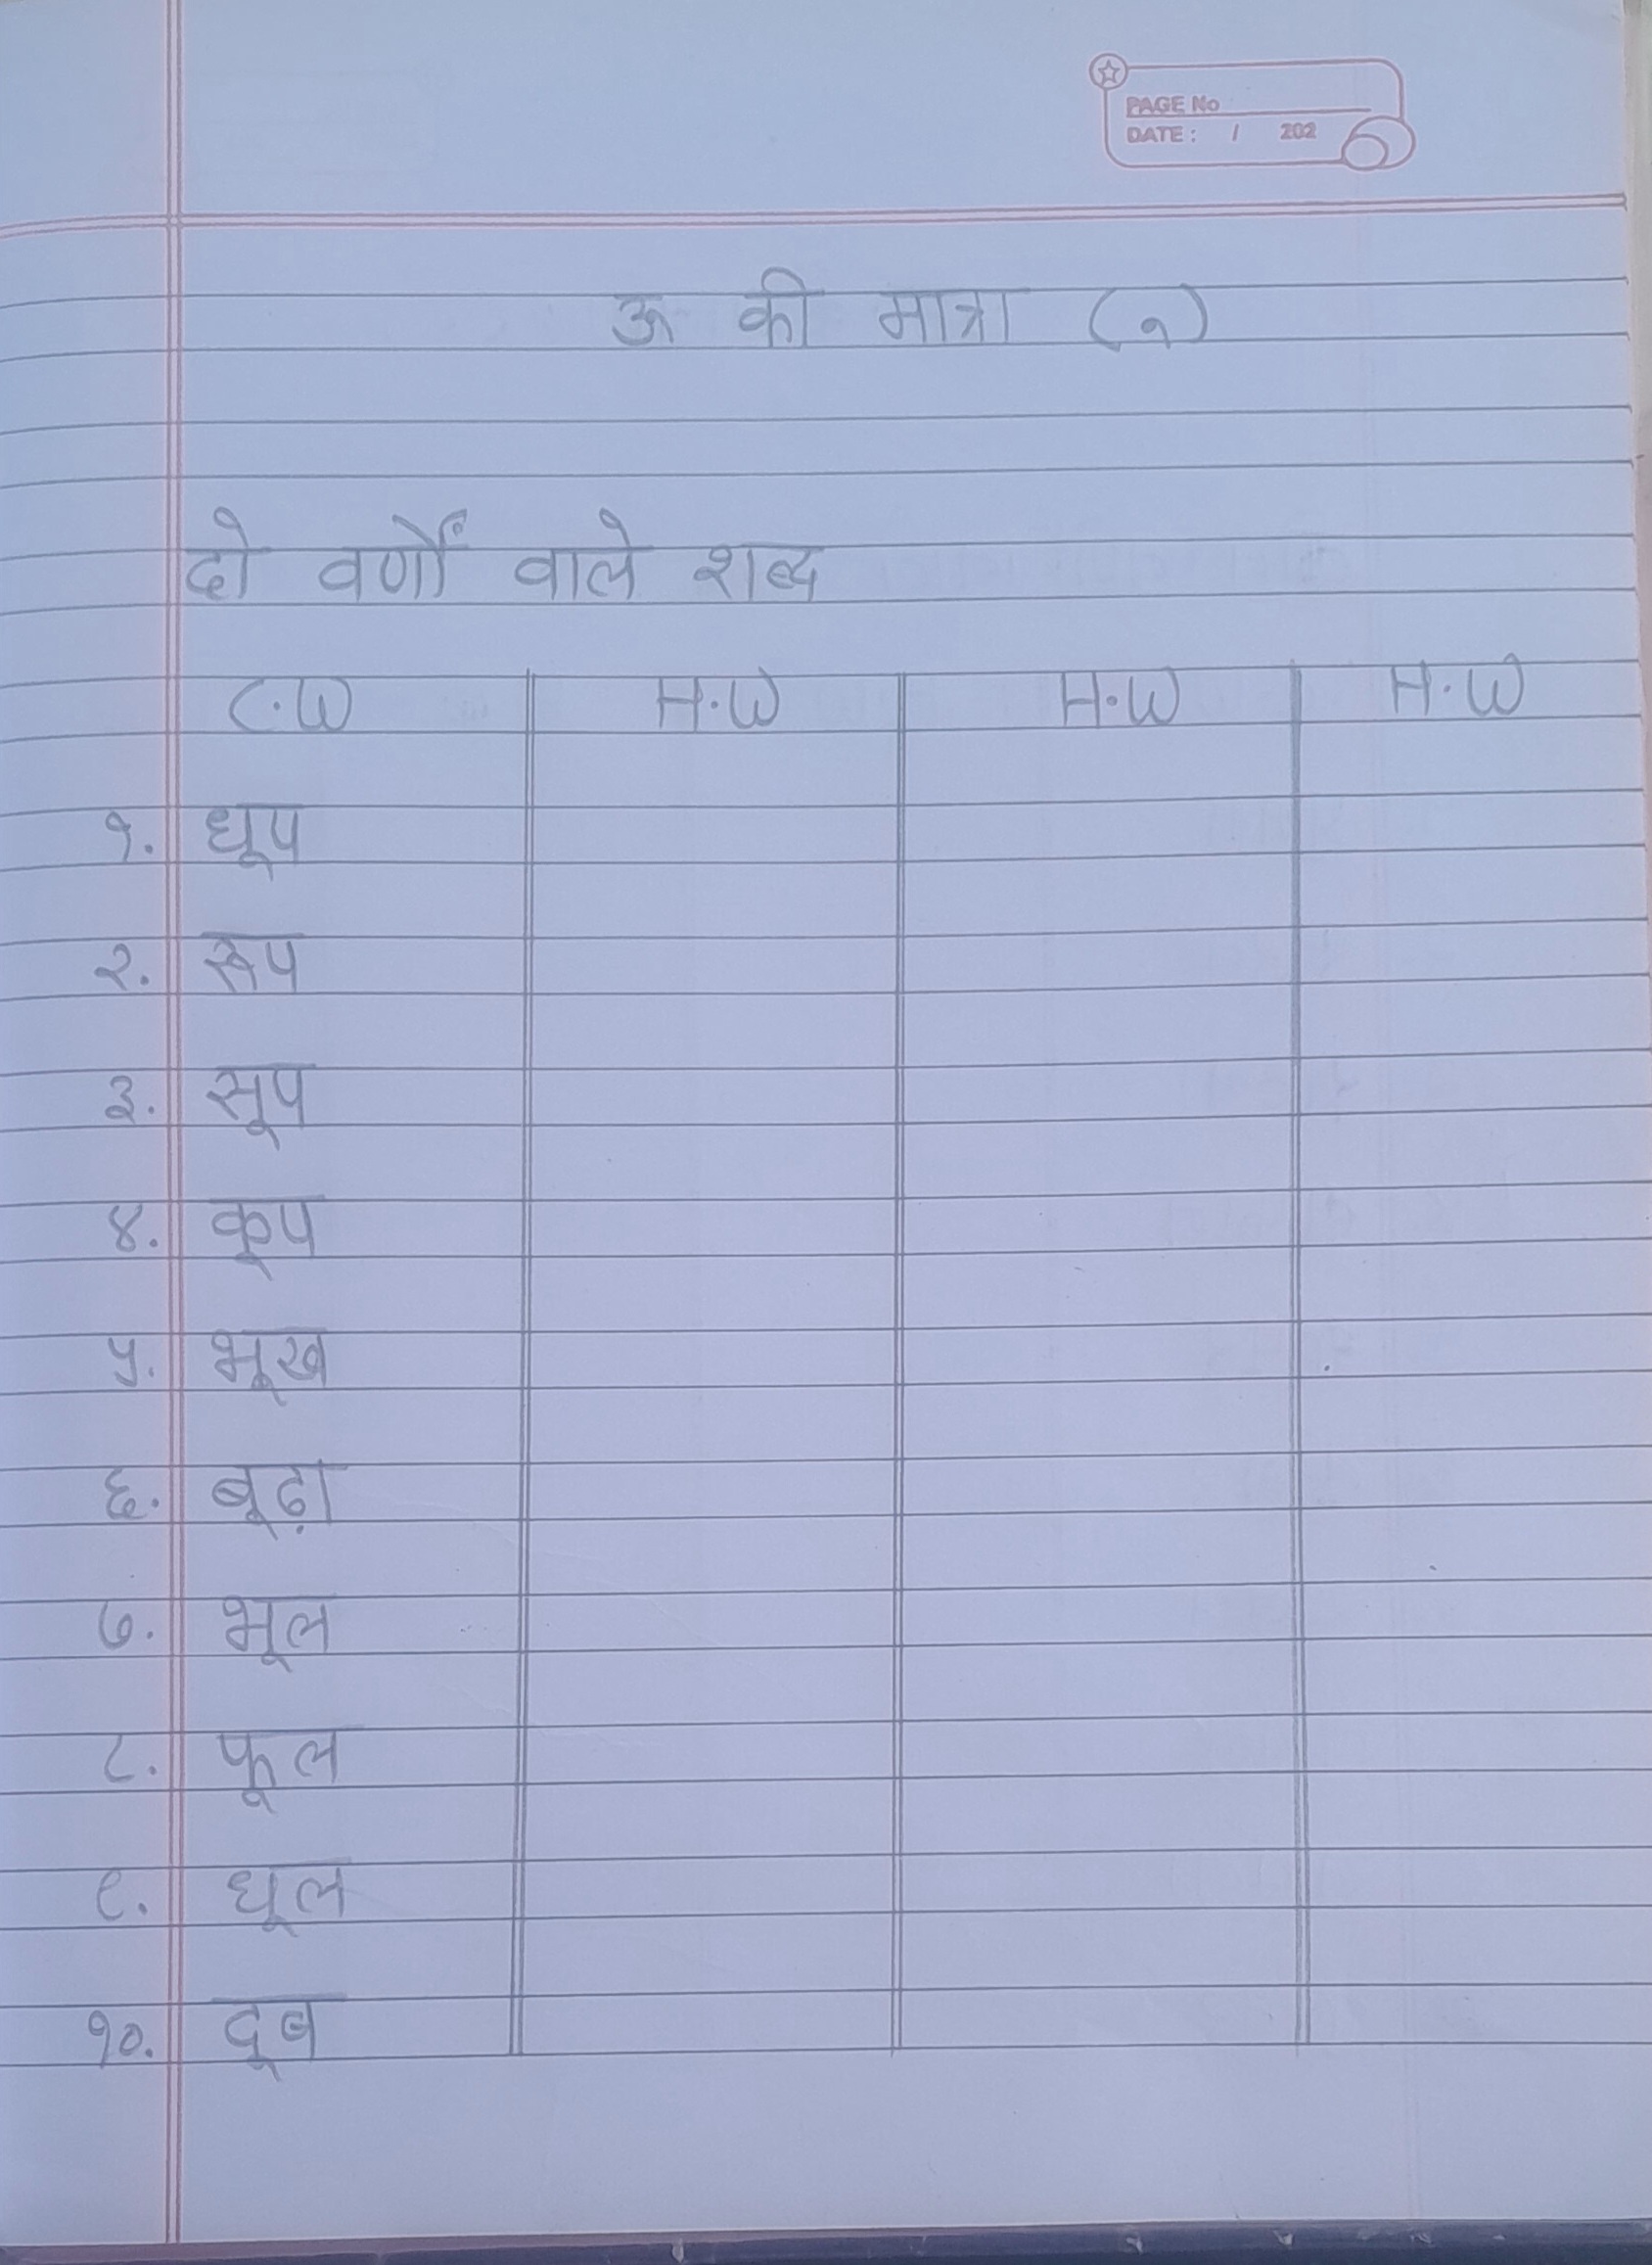 PAGE No
DATE: / 202
ऊ की मात्रा (ू)
दो वर्णों वाले शब्द
C.W H.W H.W H.W
१. धूप
२. रूप
३. सूप
४. कूप
५. भूख
६. बूढ़ा
७. भूल
८. फूल
९. धूल
१०. दूब